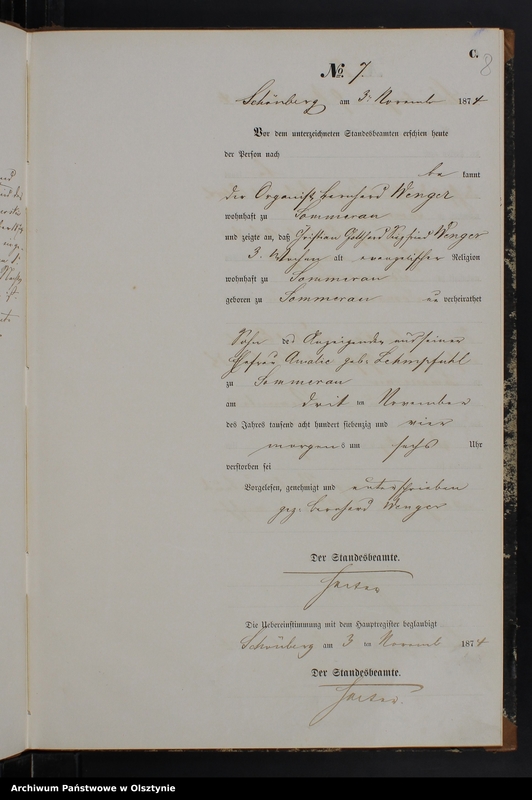 C.
8
№ 7.
Schönberg am 3. November 1874
Vor dem unterzeichneten Standesbeamten erschien heute
der Person nach
be kannt
der Organist Bernhard Wenger
wohnhaft zu Sommerau
und zeigte an, daß Christian Gotthard Siegfried Wenger
3 Wochen alt evangelischer Religion
wohnhaft zu Sommerau
geboren zu Sommerau un verheirathet
Sohn des Anzeigenden und seiner
Ehefrau Amalie geb: Lehmpfuhl
zu Sommerau
am dritten November
des Jahres tausend acht hundert siebenzig und vier
morgens um sechs Uhr
verstorben sei
Vorgelesen, genehmigt und unterschrieben
gez: Bernhard Wenger
Der Standesbeamte.
Die Uebereinstimmung mit dem Hauptregister beglaubigt
Schönberg am 3 ten Novemb 1874
Der Standesbeamte.
Archiwum Państwowe w Olsztynie